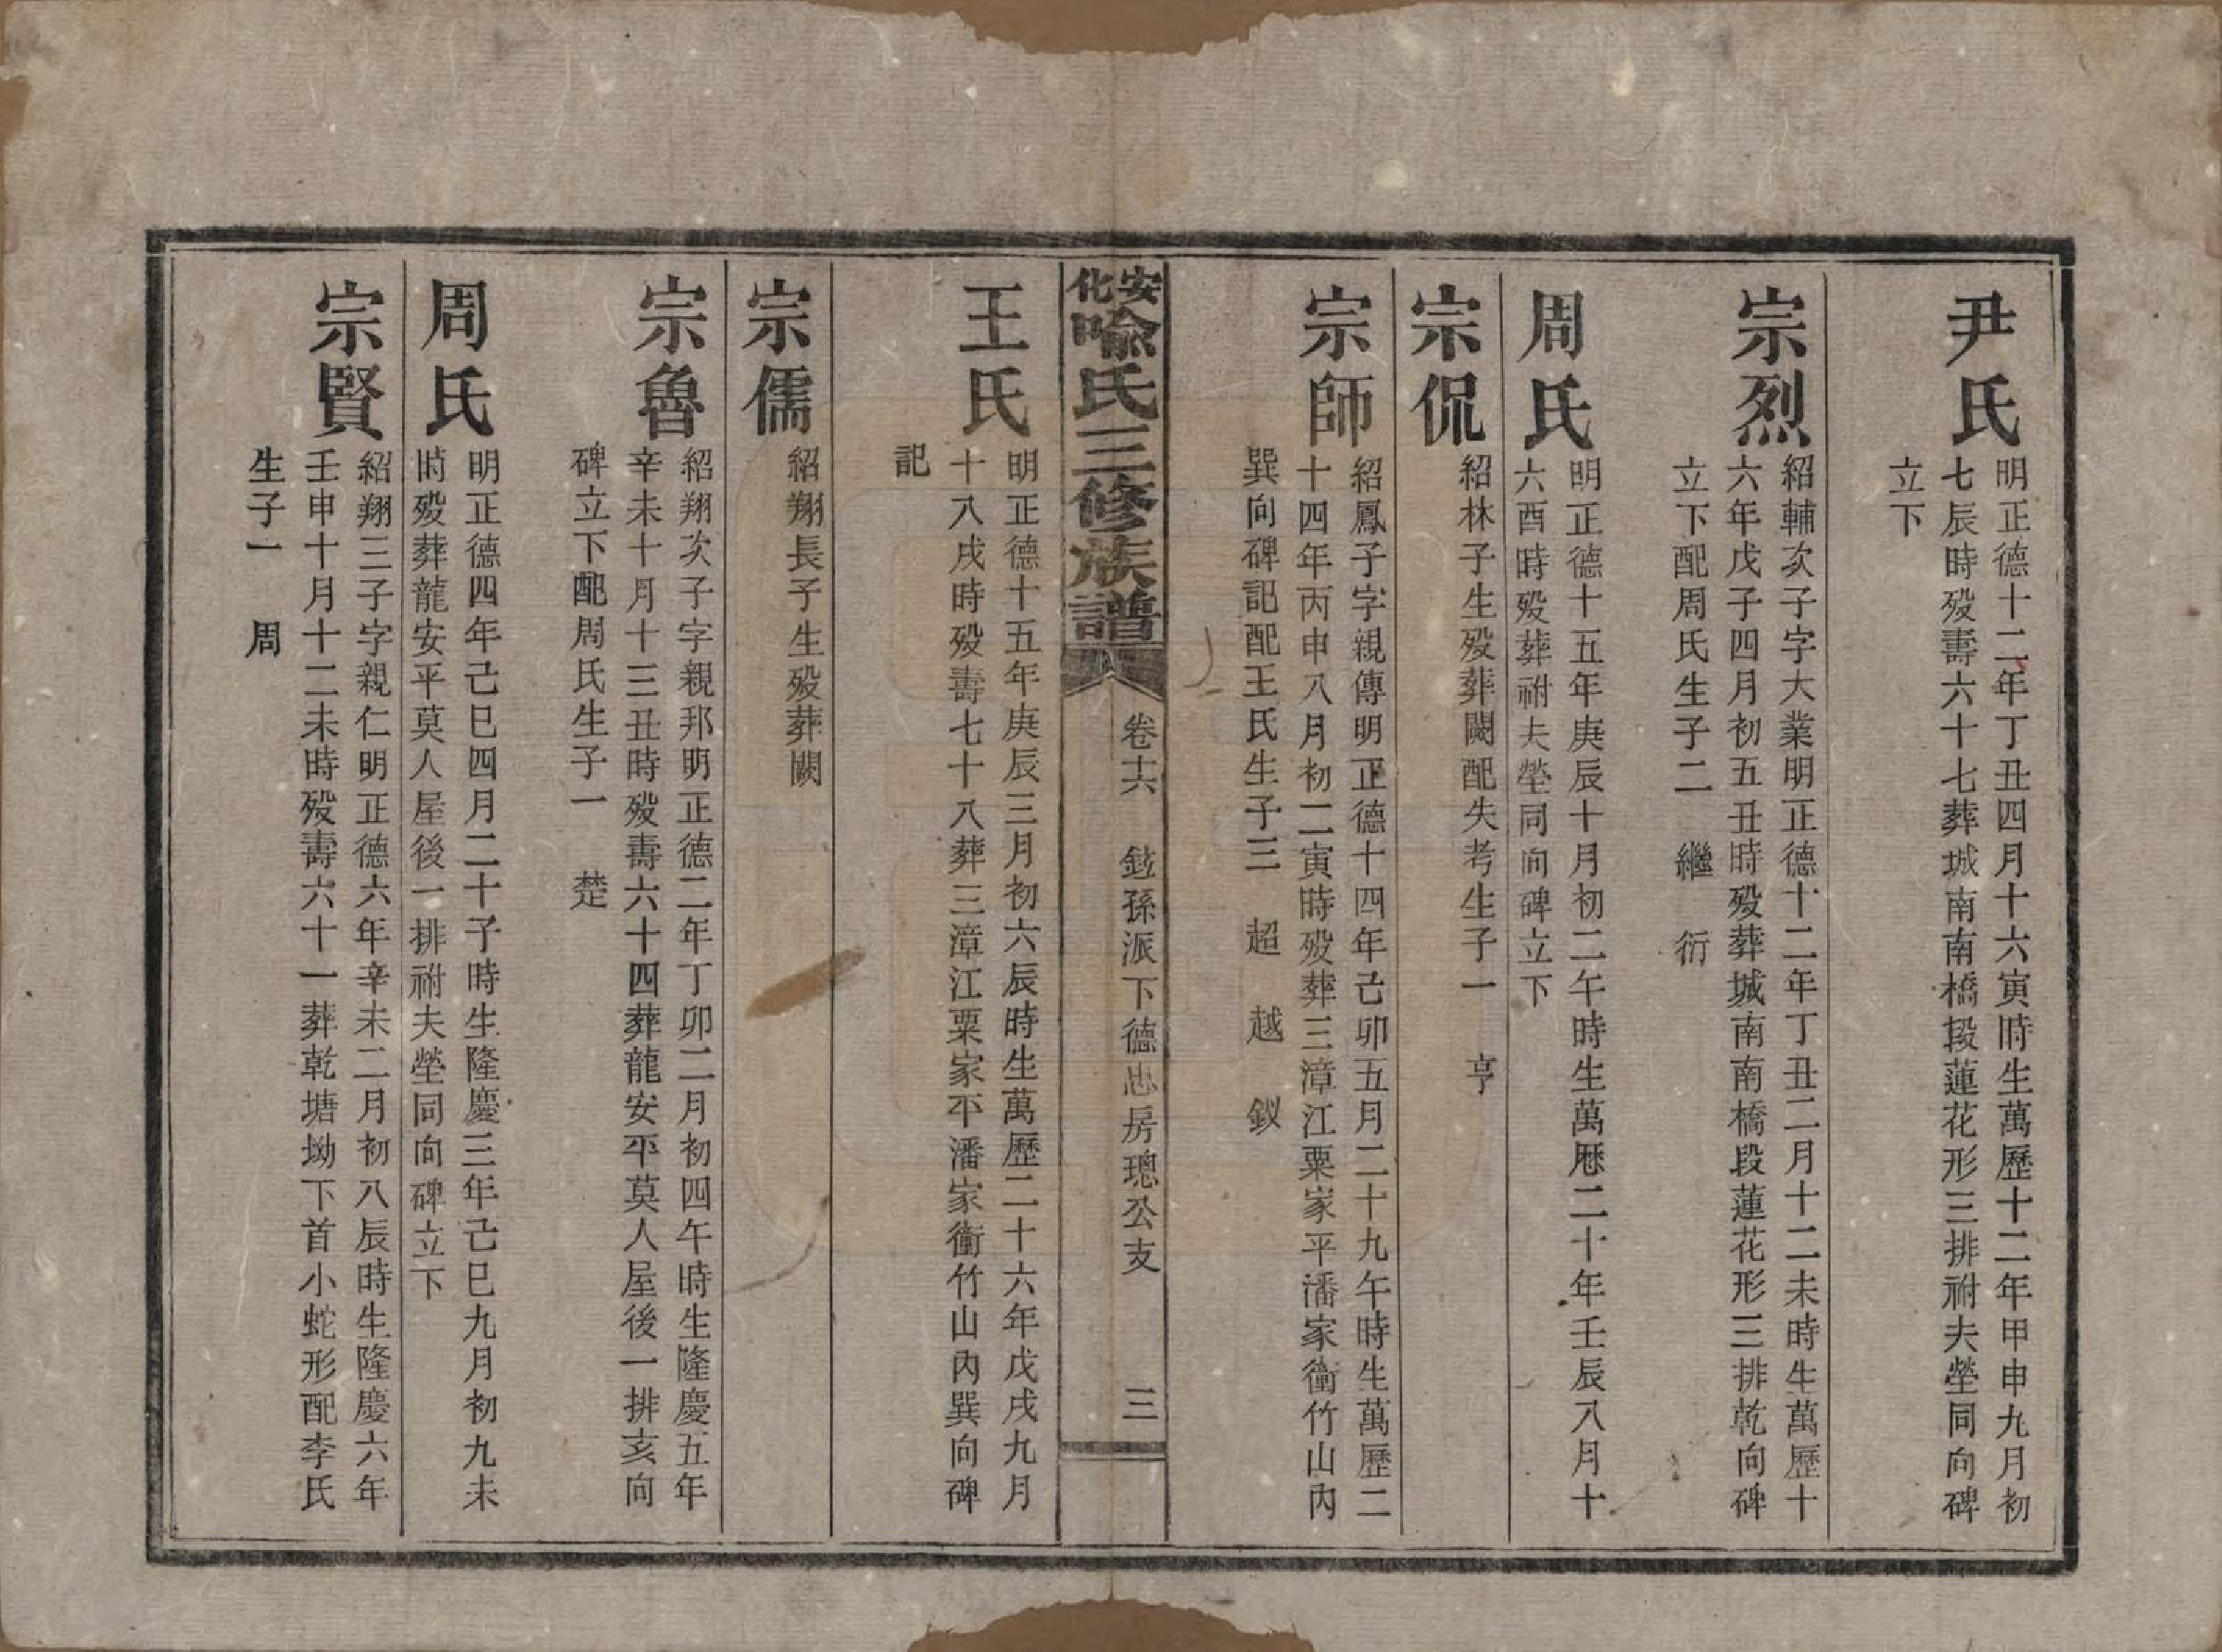 尹氏
明正德十二年丁丑四月十六寅時生萬歷十二年甲申九月初
七辰時歿壽六十七葬城南南橋段蓮花形三排祔夫塋同向碑
立下
宗烈
紹輔次子字大業明正德十二年丁丑二月十二未時生萬歷十
六年戊子四月初五丑時歿葬城南南橋段蓮花形三排乾向碑
立下配周氏生子二　繼　衍
周氏
明正德十五年庚辰十月初二午時生萬歷二十年壬辰八月十
六酉時歿葬祔夫塋同向碑立下
宗侃
紹林子生歿葬闕配失考生子一　亨
宗師
紹鳳子字親傳明正德十四年己卯五月二十九午時生萬歷二
十四年丙申八月初二寅時歿葬三漳江粟家平潘家衝竹山內
巽向碑記配王氏生子三　超　越　釵
安化喻氏三修族譜　卷十六　鉉孫派下德忠房璁公支　三
王氏
明正德十五年庚辰三月初六辰時生萬歷二十六年戊戌九月
十八戌時歿壽七十八葬三漳江粟家平潘家衝竹山內巽向碑
記
宗儒
紹翔長子生歿葬闕
宗魯
紹翔次子字親邦明正德二年丁卯二月初四午時生隆慶五年
辛未十月十三丑時歿壽六十四葬龍安平莫人屋後一排亥向
碑立下配周氏生子一　楚
周氏
明正德四年己巳四月二十子時生隆慶三年己巳九月初九未
時歿葬龍安平莫人屋後一排祔夫塋同向碑立下
宗賢
紹翔三子字親仁明正德六年辛未二月初八辰時生隆慶六年
壬申十月十二未時歿壽六十一葬乾塘坳下首小蛇形配李氏
生子一　周